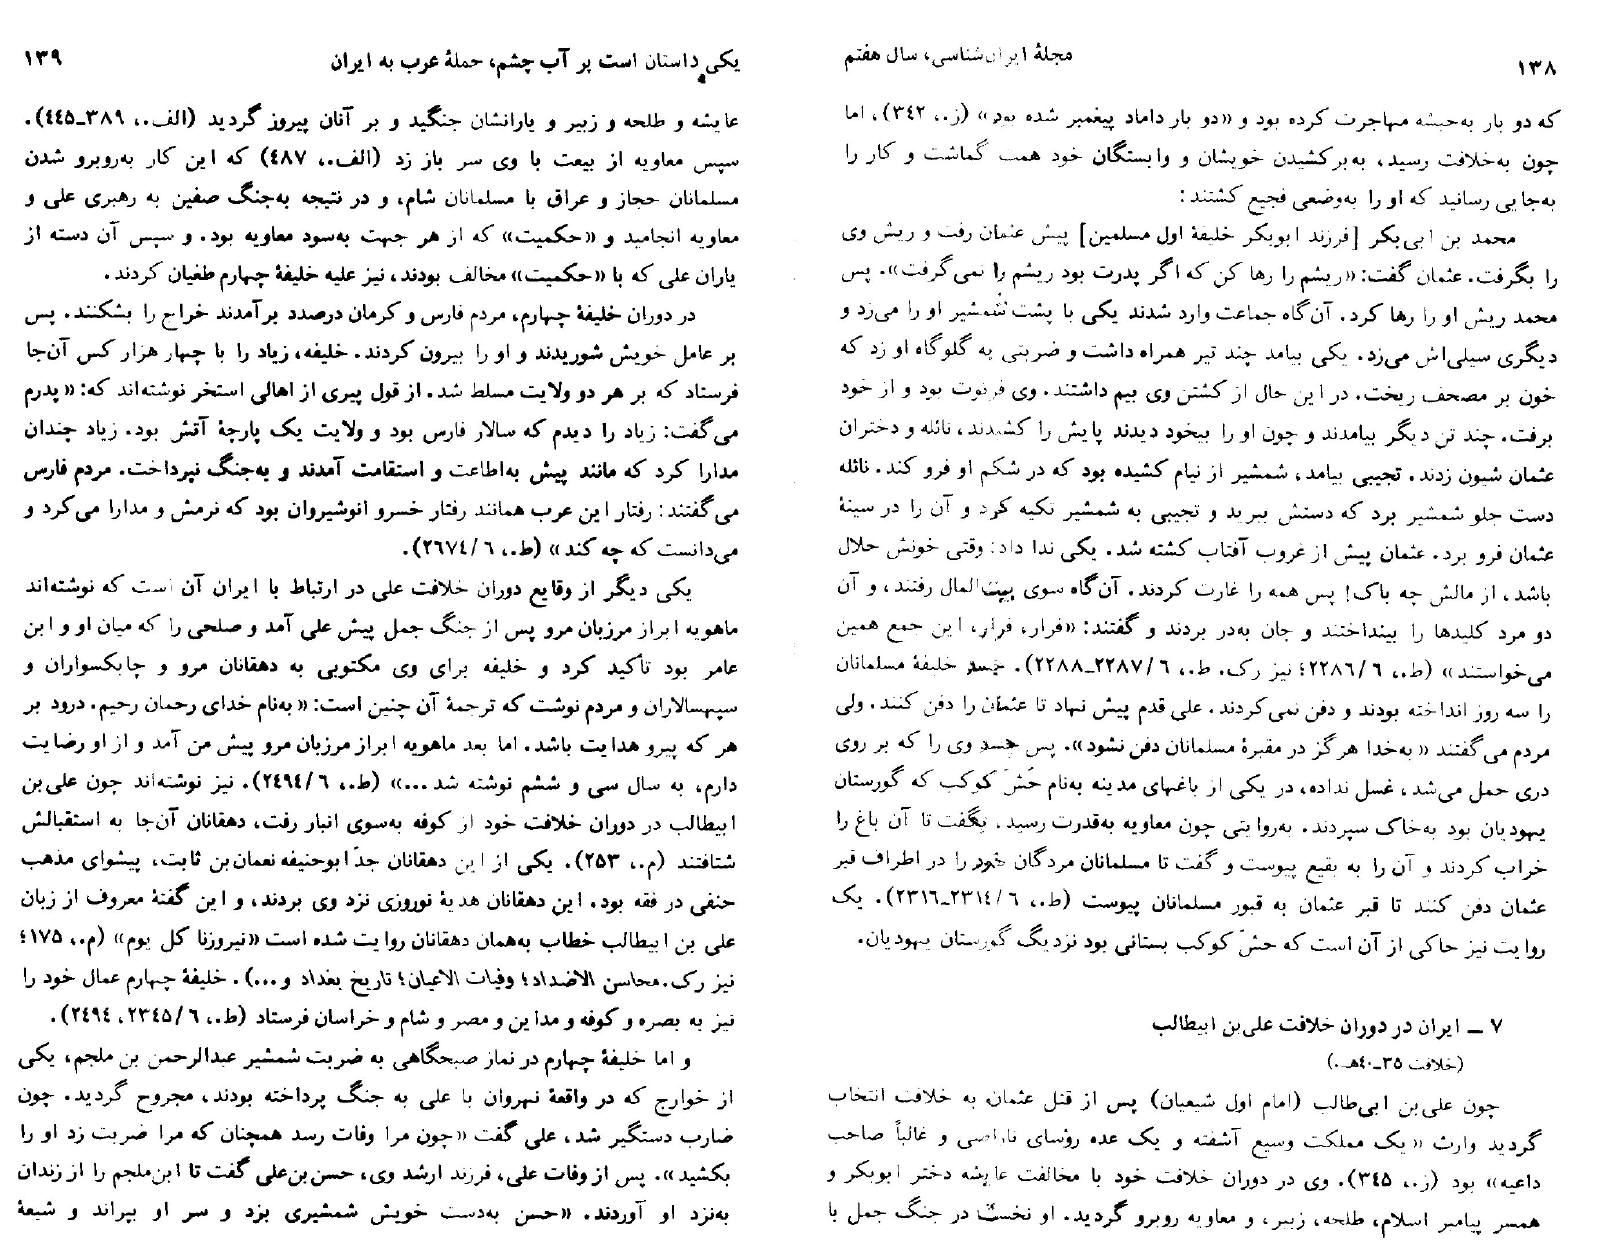 ۱۳۸
مجلهٔ ایران‌شناسی، سال هفتم
که دو بار به‌حبشه مهاجرت کرده بود و «دو بار داماد پیغمبر شده بود» (ز.، ۳٤۲)، اما
چون به‌خلافت رسید، به‌برکشیدن خویشان و وابستگان خود همت گماشت و کار را
به‌جایی رسانید که او را به‌وضعی فجیع کشتند:
محمد بن ابی‌بکر [فرزند ابوبکر خلیفهٔ اول مسلمین] پیش عثمان رفت و ریش وی
را بگرفت. عثمان گفت: «ریشم را رها کن که اگر پدرت بود ریشم را نمی‌گرفت». پس
محمد ریش او را رها کرد. آن‌گاه جماعت وارد شدند یکی با پشت شمشیر او را می‌زد و
دیگری سیلی‌اش می‌زد. یکی بیامد چند تیر همراه داشت و ضربتی به گلوگاه او زد که
خون بر مصحف ریخت. در این حال از کشتن وی بیم داشتند. وی فرتوت بود و از خود
برفت. چند تن دیگر بیامدند و چون او را بیخود دیدند پایش را کشیدند، نائله و دختران
عثمان شیون زدند. تجیبی بیامد، شمشیر از نیام کشیده بود که در شکم او فرو کند. نائله
دست جلو شمشیر برد که دستش ببرید و تجیبی به شمشیر تکیه کرد و آن را در سینهٔ
عثمان فرو برد. عثمان پیش از غروب آفتاب کشته شد. یکی ندا داد: وقتی خونش حلال
باشد، از مالش چه باک! پس همه را غارت کردند. آن‌گاه سوی بیت‌المال رفتند، و آن
دو مرد کلیدها را بینداختند و جان به‌در بردند و گفتند: «فرار، فرار، این جمع همین
می‌خواستند» (ط.، ۲۲۸٦/٦؛ نیز رک. ط.، ۲۲۸۷/٦ـ۲۲۸۸). جسد خلیفهٔ مسلمانان
را سه روز انداخته بودند و دفن نمی‌کردند. علی قدم پیش نهاد تا عثمان را دفن کنند. ولی
مردم می‌گفتند «به‌خدا هرگز در مقبرهٔ مسلمانان دفن نشود». پس جسد وی را که بر روی
دری حمل می‌شد، غسل نداده، در یکی از باغهای مدینه به‌نام حَشّ کوکب که گورستان
یهودیان بود به‌خاک سپردند. به‌روایتی چون معاویه به‌قدرت رسید، بگفت تا آن باغ را
خراب کردند و آن را به بقیع پیوست و گفت تا مسلمانان مردگان خود را در اطراف قبر
عثمان دفن کنند تا قبر عثمان به قبور مسلمانان پیوست (ط.، ۲۳۱٤/٦ـ۲۳۱٦). یک
روایت نیز حاکی از آن است که حشّ کوکب بستانی بود نزدیک گورستان یهودیان.
۷ ـ ایران در دوران خلافت علی‌بن ابیطالب
(خلافت ۳۵ـ٤۰هـ.)
چون علی‌بن ابی‌طالب (امام اول شیعیان) پس از قتل عثمان به خلافت انتخاب
گردید وارث «یک مملکت وسیع آشفته و یک عده رؤسای ناراضی و غالباً صاحب
داعیه» بود (ز.، ۳٤۵). وی در دوران خلافت خود با مخالفت عایشه دختر ابوبکر و
همسر پیامبر اسلام، طلحه، زبیر، و معاویه روبرو گردید. او نخست در جنگ جمل با
یکی داستان است پر آب چشم، حملهٔ عرب به ایران
۱۳۹
عایشه و طلحه و زبیر و یارانشان جنگید و بر آنان پیروز گردید (الف.، ۳۸۹ـ٤٤۵).
سپس معاویه از بیعت با وی سر باز زد (الف.، ٤۸۷) که این کار به‌روبرو شدن
مسلمانان حجاز و عراق با مسلمانان شام، و در نتیجه به‌جنگ صفین به رهبری علی و
معاویه انجامید و «حکمیت» که از هر جهت به‌سود معاویه بود. و سپس آن دسته از
یاران علی که با «حکمیت» مخالف بودند، نیز علیه خلیفهٔ چهارم طغیان کردند.
در دوران خلیفهٔ چهارم، مردم فارس و کرمان درصدد برآمدند خراج را بشکنند. پس
بر عامل خویش شوریدند و او را بیرون کردند. خلیفه، زیاد را با چهار هزار کس آن‌جا
فرستاد که بر هر دو ولایت مسلط شد. از قول پیری از اهالی استخر نوشته‌اند که: «پدرم
می‌گفت: زیاد را دیدم که سالار فارس بود و ولایت یک پارچهٔ آتش بود. زیاد چندان
مدارا کرد که مانند پیش به‌اطاعت و استقامت آمدند و به‌جنگ نپرداخت. مردم فارس
می‌گفتند: رفتار این عرب همانند رفتار خسرو انوشیروان بود که نرمش و مدارا می‌کرد و
می‌دانست که چه کند» (ط.، ۲٦۷٤/٦).
یکی دیگر از وقایع دوران خلافت علی در ارتباط با ایران آن است که نوشته‌اند
ماهویه ابراز مرزبان مرو پس از جنگ جمل پیش علی آمد و صلحی را که میان او و ابن
عامر بود تأکید کرد و خلیفه برای وی مکتوبی به دهقانان مرو و چابکسواران و
سپهسالاران و مردم نوشت که ترجمهٔ آن چنین است: «به‌نام خدای رحمان رحیم. درود بر
هر که پیرو هدایت باشد. اما بعد ماهویه ابراز مرزبان مرو پیش من آمد و از او رضایت
دارم، به سال سی و ششم نوشته شد...» (ط.، ۲٤۹٤/٦). نیز نوشته‌اند چون علی‌بن
ابیطالب در دوران خلافت خود از کوفه به‌سوی انبار رفت، دهقانان آن‌جا به استقبالش
شتافتند (م.، ۲۵۳). یکی از این دهقانان جدّ ابوحنیفه نعمان‌بن ثابت، پیشوای مذهب
حنفی در فقه بود. این دهقانان هدیهٔ نوروزی نزد وی بردند، و این گفتهٔ معروف از زبان
علی بن ابیطالب خطاب به‌همان دهقانان روایت شده است «نیروزنا کل یوم» (م.، ۱۷۵؛
نیز رک. محاسن الاضداد؛ وفیات الاعیان؛ تاریخ بغداد و...). خلیفهٔ چهارم عمال خود را
نیز به بصره و کوفه و مداین و مصر و شام و خراسان فرستاد (ط.، ۲۳٤۵/٦، ۲٤۹٤).
و اما خلیفهٔ چهارم در نماز صبحگاهی به ضربت شمشیر عبدالرحمن بن ملجم، یکی
از خوارج که در واقعهٔ نهروان با علی به جنگ پرداخته بودند، مجروح گردید. چون
ضارب دستگیر شد، علی گفت «چون مرا وفات رسد همچنان که مرا ضربت زد او را
بکشید». پس از وفات علی، فرزند ارشد وی، حسن‌بن‌علی گفت تا ابن‌ملجم را از زندان
به‌نزد او آوردند. «حسن به‌دست خویش شمشیری بزد و سر او بپراند و شیعهٔ